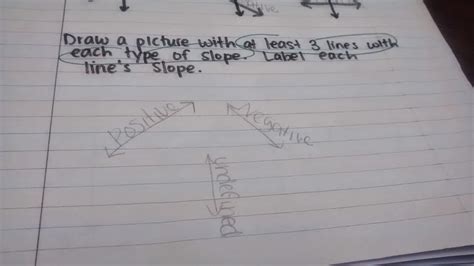 Draw a picture with at least 3 lines with
each type of slope. Label each
line's slope.
Positive
Negative
undefined